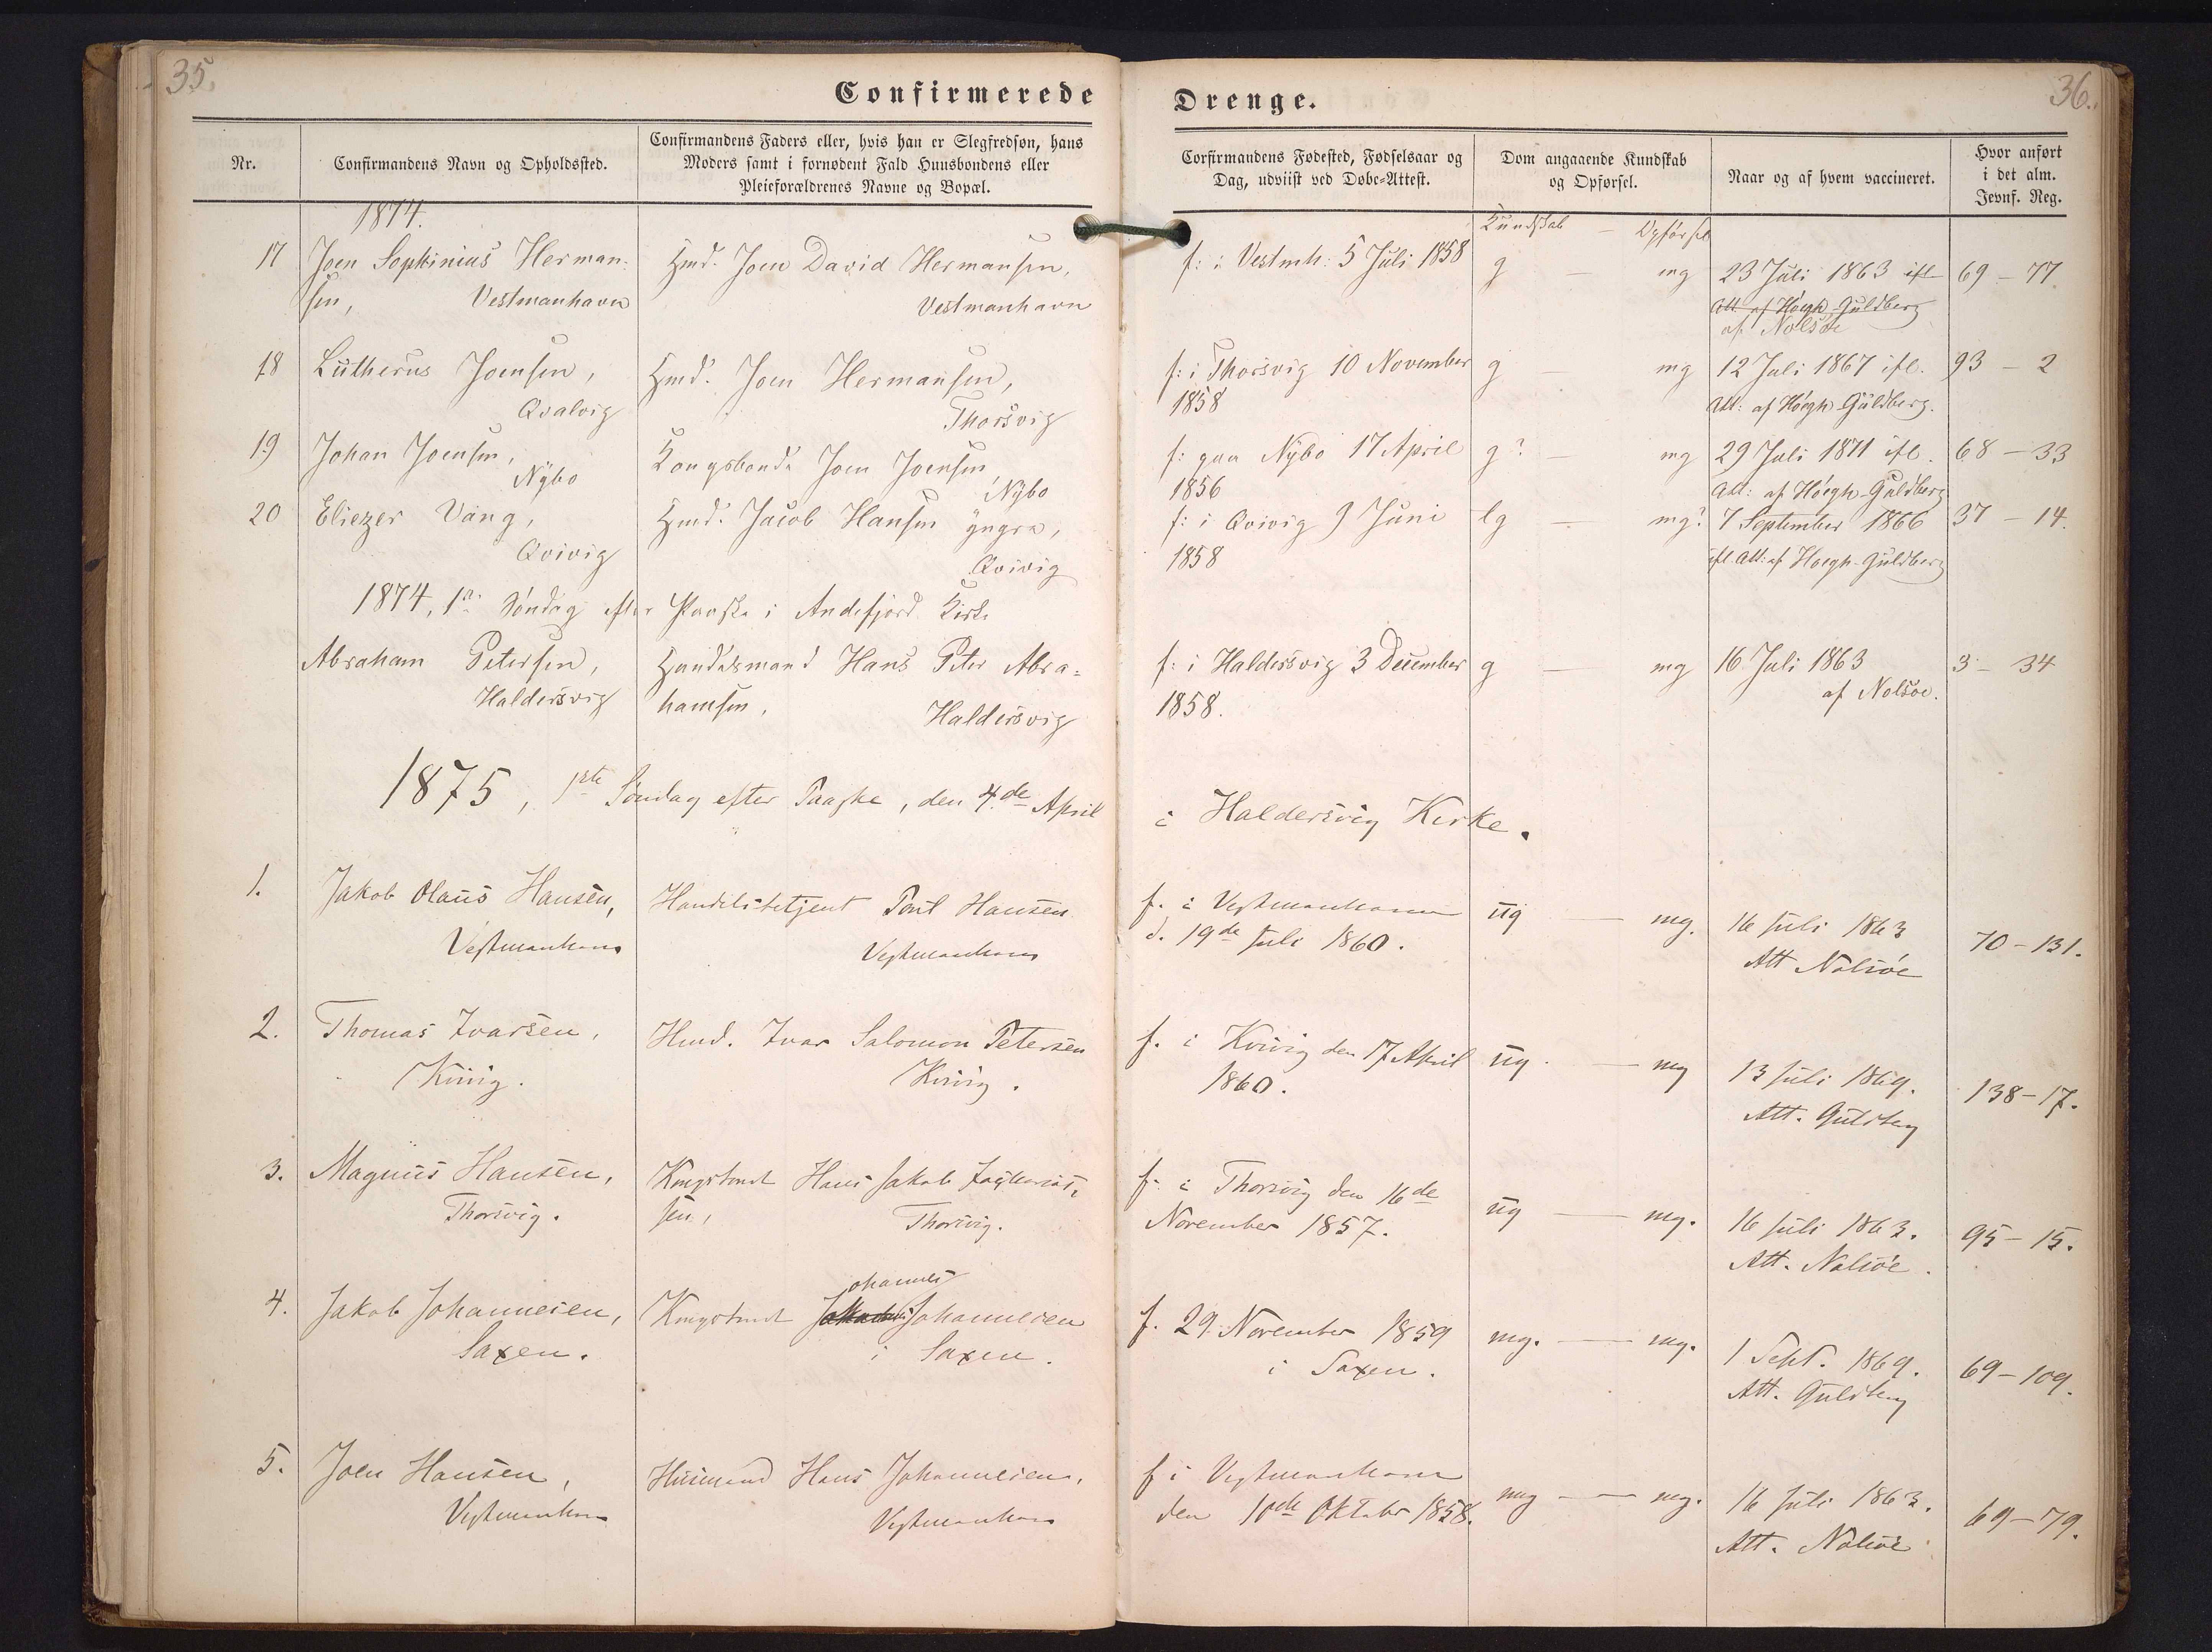 35.
36.
Confirmerede Drenge.
Nr.
Confirmandens Navn og Opholdssted.
Confirmandens Faders eller, hvis han er Slegfredsøn, hans
Moders samt i fornødent Fald Huusbondens eller
Pleieforældrenes Navne og Bopæl.
Corfirmandens Fødested, Fødselsaar og
Dag, udviist ved Døbe-Attest.
Dom angaaende Kundskab
og Opførsel.
Naar og af hvem vaccineret.
Hvor anført
i det alm.
Jevnf. Reg.
1874.
Kundskab — Opførsel
17 Joen Sophinius Herman-
sen, Vestmanhavn
Hmd. Joen David Hermansen,
Vestmanhavn
f: i Vestmh. 5 Juli 1858
g — mg
23 Juli 1863 ifl
Att af Høegh-Guldberg
af Nolsöe
69 - 77
18 Lutherus Joensen,
Qvalvig
Hmd. Joen Hermansen,
Thorsvig
f: i Thorsvig 10 November
1858
g — mg
12 Juli 1867 ifl.
Att: af Høegh-Guldberg.
93 - 2
19 Johan Joensen,
Nybo
Kongsbonde Joen Joensen
Nybo
f: paa Nybo 17 April
1856
g? — mg
29 Juli 1871 ifl.
Att: af Høegh-Guldberg
68 - 33
20 Eliezer Vang,
Qvivig
Hmd. Jacob Hansen yngre,
Qvivig
f: i Qvivig 9 Juni
1858
tg — mg?
7 September 1866
ifl. Att: af Høegh-Guldberg
37 - 14.
1874, 1ste Söndag efter Paaske i Andefjord Kirke
Abraham Petersen,
Haldersvig
Handelsmand Hans Peter Abra-
hamsen,
Haldersvig
f: i Haldersvig 3 December
1858.
g — mg
16 Juli 1863
af Nolsöe.
3 - 34
1875, 1ste Søndag efter Paaske, den 4de April
i Haldersvig Kirke.
1. Jakob Olaus Hansen,
Vestmanhavn
Handelsbetjent Poul Hansen
Vestmanhavn
f. i Vestmanhavn
d. 19de Juli 1860.
ug — mg.
16 Juli 1863
Att Nolsöe
70-131.
2. Thomas Ivarsen,
Kvivig.
Hmd. Ivar Salomon Petersen
Kvivig.
f. i Kvivig den 17 April
1860.
ug. — mg
13 Juli 1869.
Att. Guldberg
138-17.
3. Magnus Hansen,
Thorsvig.
Kongsbond Hans Jakob Zacharias-
sen,
Thorsvig.
f. i Thorsvig den 16de
November 1857.
ug — mg.
16 Juli 1863.
Att. Nolsöe.
95-15.
4. Jakob Johannesen,
Saxen.
ohannes
Kongsbond J Johannesen
i Saxen.
f. 29 November 1859
i Saxen.
mg. — mg.
1 Sept. 1869.
Att. Guldberg
69-109.
5. Joen Hansen,
Vestmanhavn
Huusmand Hans Johannesen,
Vestmanhavn
f i Vestmanhavn
den 10de Oktober 1858.
mg — mg.
16 Juli 1863.
Att. Nolsöe
69-79.